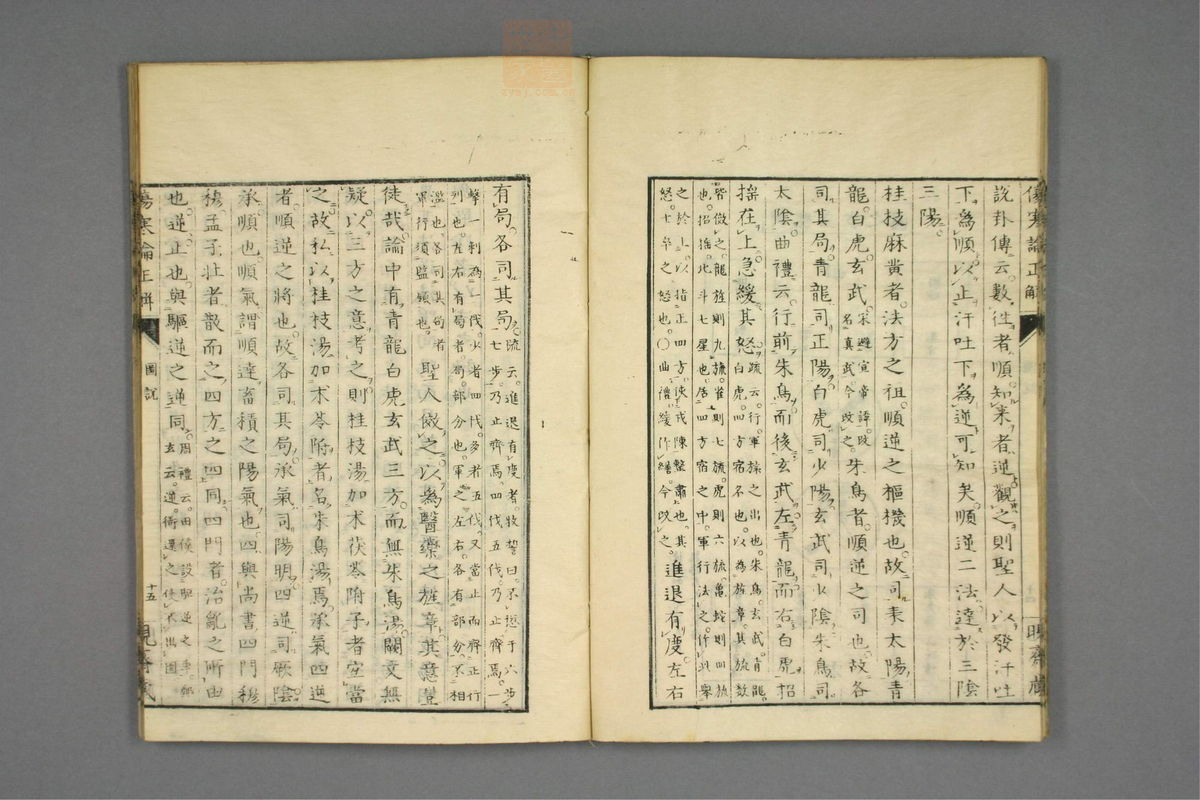 說卦傳云數徃者順知来者逆觀之則聖人以發汗吐
下爲順以上汗吐下爲逆可知矣順逆二法達於三陰
三陽
桂枝麻黄者法方之祖順逆之樞機也故司耒太陽青
龍白虎玄武宋避宣帝諱改名真武今改之朱鳥者順逆之司也故各
司其局青龍司正陽白虎司少陽玄武司少陰朱鳥司
太陰曲禮云行前朱鳥而後玄武左青龍而右白虎招
搖在上急緩其怒疏云行軍旅之出也朱鳥玄武青龍白虎四方宿名也以為旌章其旒數
皆倣之龍旌則九旒雀則七旒虎則六旒亀蛇則四旒也招搖北斗七星也居四方宿之中軍行法之作此舉
之於上以指正四方使戎陳整肅也其怒士卒之怒也○曲禮緩作繕今改之進退有度左右
有局各司其局疏云進退有度者牧誓曰不愆于六步七步乃止齊焉四伐五伐乃止齊焉一
擊一刺為一伐少者四伐多者五伐又當止而齊正行列也左右有局者局部分也軍之左右各有部分不相
濫也各司其局者軍行須監領也聖人倣之以爲醫藥之旌章其意豈
徒哉論中有青龍白虎玄武三方而無朱鳥湯闕文無
疑以三方之意考之則桂枝湯加术茯苓附子者宜當
之故私以桂枝湯加术苓附者名朱鳥湯焉承氣四逆
者順逆之將也故各司其局承氣司陽明四逆司厥陰
承順也順氣謂順達畜積之陽氣也四與尚書四門穆
穆孟子壯者散而之四方之四同四門者治亂之所由
也逆止也與驅逆之逆同周禮云田僕設驅逆之車鄭玄云逆衙還之使不出圍
傷寒論正解
圖說
十五